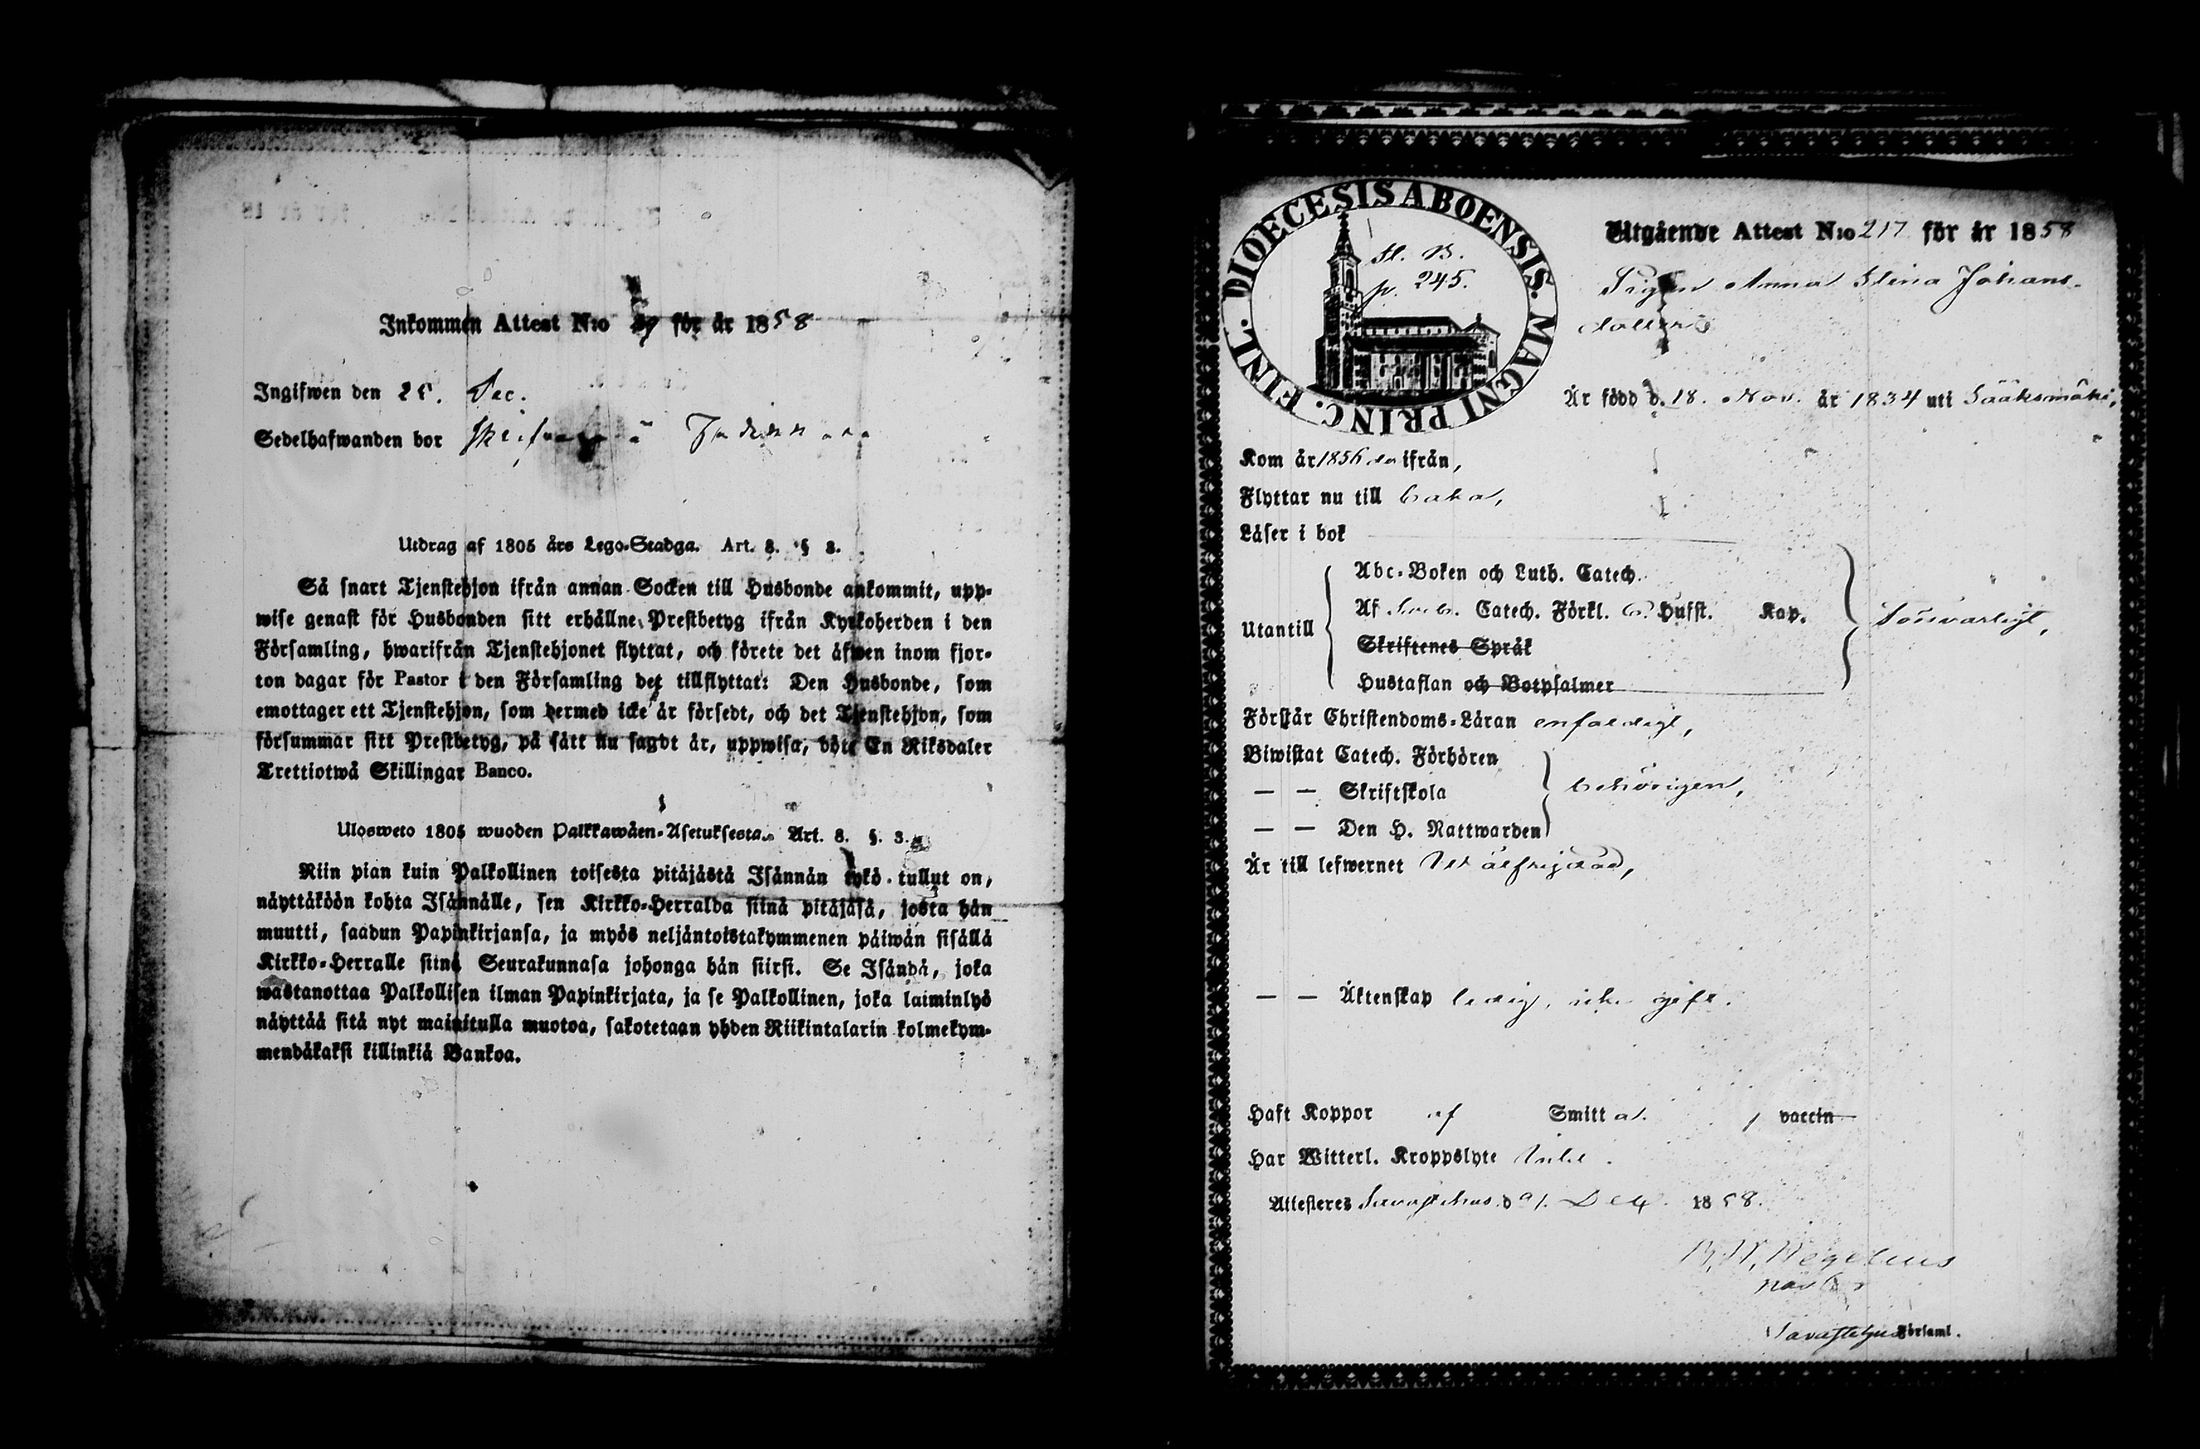 Inkommen Attest N:o för år 1858
Ingifwen den 25. Dec.
Sedelhafwanden bor
Utdrag af 1805 års Lego-Stadga. Art. 8. § 3.
Så snart Tjenstehjon ifrån annan Socken till Husbonde ankommit, upp-
wise genast för Husbonden sitt erhållne Prestbetyg ifrån Kyrkoherden i den
Församling, hwarifrån Tjenstehjonet flyttat, och förete det äfwen inom fjor-
ton dagar för Pastor i den Församling det tillflyttat: Den Husbonde, som
emottager ett Tjenstehjon, som dermed icke är försedt, och det Tjenstehjon, som
försummar sitt Prestbetyg, på sätt nu sagdt är, uppwisa, böte En Riksdaler
Trettiotwå Skillingar Banco.
Ulosweto 1805 wuoden Palkkawäen-Asetuksesta. Art. 8. §. 3.
Niin pian kuin Palkollinen toisesta pitäjästä Isännän tykö tullut on,
näyttäköön kohta Isännälle, sen Kirkko-Herralda siinä pitäjäsä, josta hän
muutti, saadun Papinkirjansa, ja myös neljäntoistakymmenen päiwän sisällä
Kirkko-Herralle siinä Seurakunnasa johonga hän siirsi. Se Isändä, joka
wastanottaa Palkollisen ilman Papinkirjata, ja se Palkollinen, joka laiminlyö
näyttää sitä nyt mainitulla muotoa, sakotetaan yhden Riikintalarin kolmekym-
mendäkaksi killinkiä Bankoa.
DIOECESIS ABOENSIS. MAGNI PRINC. FINL.
p. 245.
Utgående Attest N:o 217 för år 1858
Pigan Anna Stina Johans-
dotter
Är född d. 18. Nov. år 1834 uti Sääksmäki,
Kom år 1856 ifrån,
Flyttar nu till
Läser i bok
Utantill
Abc-Boken och Luth. Catech.
Af Catech. Förkl. Husst. Kap.
Skriftenes Språk
Hustaflan och Botpsalmer
försvarligt,
Förstår Christendoms-Läran enfaldigt,
Biwistat Catech. Förhören
— — Skriftskola
— — Den H. Nattwarden
behörigen,
Är till lefwernet
— — Äktenskap ledig, icke gift.
Haft Koppor af Smitt vaccin
Har Witterl. Kroppslyte
Attesteres Tavastehus d 1858.
Tavastehus Församl.